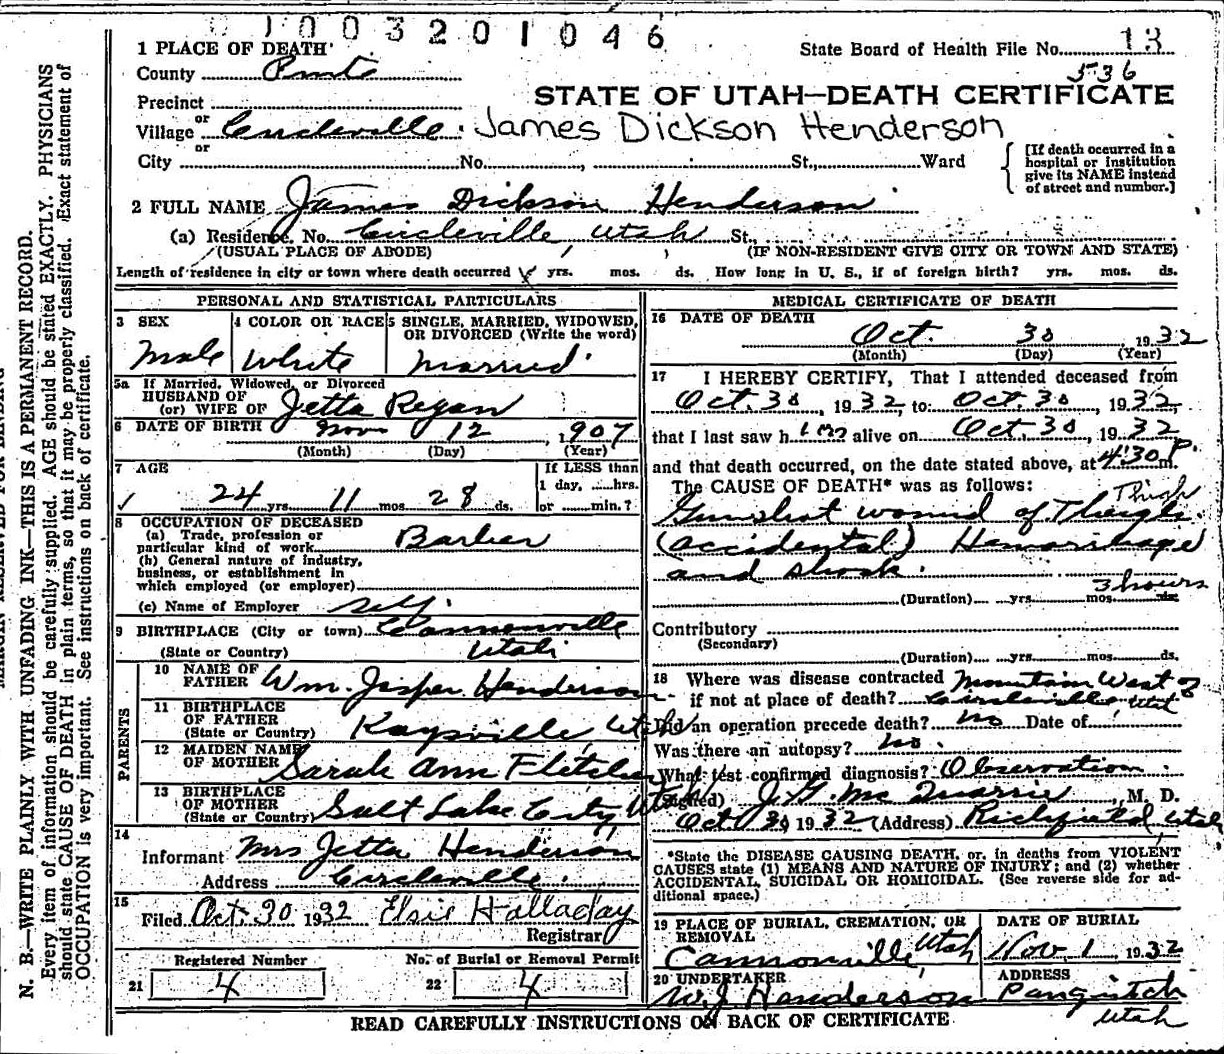 1003201046
1 PLACE OF DEATH
State Board of Health File No. 13
536
County
Precinct
or
STATE OF UTAH—DEATH CERTIFICATE
Village Circleville. James Dickson Henderson
or
City No. , St., Ward
[If death occurred in a
hospital or institution
give its NAME instead
of street and number.]
2 FULL NAME James Dickson Henderson
(a) Residence, No. Circleville, Utah St.,
(USUAL PLACE OF ABODE) (IF NON-RESIDENT GIVE CITY OR TOWN AND STATE)
Length of residence in city or town where death occurred yrs. mos. ds. How long in U. S., if of foreign birth? yrs. mos. ds.
PERSONAL AND STATISTICAL PARTICULARS
3 SEX 4 COLOR OR RACE 5 SINGLE, MARRIED, WIDOWED,
OR DIVORCED (Write the word)
Male White Married.
5a If Married, Widowed, or Divorced
HUSBAND OF
(or) WIFE OF Jetta Regan
6 DATE OF BIRTH Nov 12, 1907
(Month) (Day) (Year)
7 AGE If LESS than
1 day, hrs.
24 yrs. 11 mos. 28 ds. or min.?
8 OCCUPATION OF DECEASED
(a) Trade, profession or
particular kind of work Barber
(b) General nature of industry,
business, or establishment in
which employed (or employer)
(c) Name of Employer Self.
9 BIRTHPLACE (City or town) Cannonville
(State or Country) Utah
PARENTS
10 NAME OF
FATHER Wm. Jesper Henderson
11 BIRTHPLACE
OF FATHER
(State or Country) Kaysville, Utah
12 MAIDEN NAME
OF MOTHER Sarah Ann Fletcher
13 BIRTHPLACE
OF MOTHER
(State or Country) Salt Lake City Utah
14
Informant Mrs Jetta Henderson
Address Circleville.
15
Filed Oct. 30 1932 Elsie Halladay
Registrar
Registered Number No. of Burial or Removal Permit
21 4 22 4
MEDICAL CERTIFICATE OF DEATH
16 DATE OF DEATH
Oct. 30 1932
(Month) (Day) (Year)
17 I HEREBY CERTIFY, That I attended deceased from
Oct. 30, 1932, to Oct. 30, 1932,
that I last saw him alive on Oct. 30, 1932
and that death occurred, on the date stated above, at 4:30 P.m.
The CAUSE OF DEATH* was as follows:
Thigh
Gunshot wound of Thigh.
(accidental) Hemorrhage
and shock.
3 hours
(Duration) yrs. mos. ds.
Contributory
(Secondary)
(Duration) yrs. mos. ds.
18 Where was disease contracted Mountain West of
if not at place of death? Circleville Utah
Did an operation precede death? no Date of
Was there an autopsy? No.
What test confirmed diagnosis? Observation.
(Signed) J. G. McQuarrie, M. D.
Oct 30, 1932 (Address) Richfield, Utah
*State the DISEASE CAUSING DEATH, or, in deaths from VIOLENT
CAUSES state (1) MEANS AND NATURE OF INJURY; and (2) whether
ACCIDENTAL, SUICIDAL OR HOMICIDAL. (See reverse side for ad-
ditional space.)
19 PLACE OF BURIAL, CREMATION, OR
REMOVAL
Cannonville Utah
DATE OF BURIAL
Nov. 1 1932
20 UNDERTAKER
W. J. Henderson
ADDRESS
Panguitch
Utah
READ CAREFULLY INSTRUCTIONS ON BACK OF CERTIFICATE
MARGIN RESERVED FOR BINDING
N. B.—WRITE PLAINLY WITH UNFADING INK—THIS IS A PERMANENT RECORD.
Every item of information should be carefully supplied. AGE should be stated EXACTLY. PHYSICIANS
should state CAUSE OF DEATH in plain terms, so that it may be properly classified. Exact statement of
OCCUPATION is very important. See instructions on back of certificate.